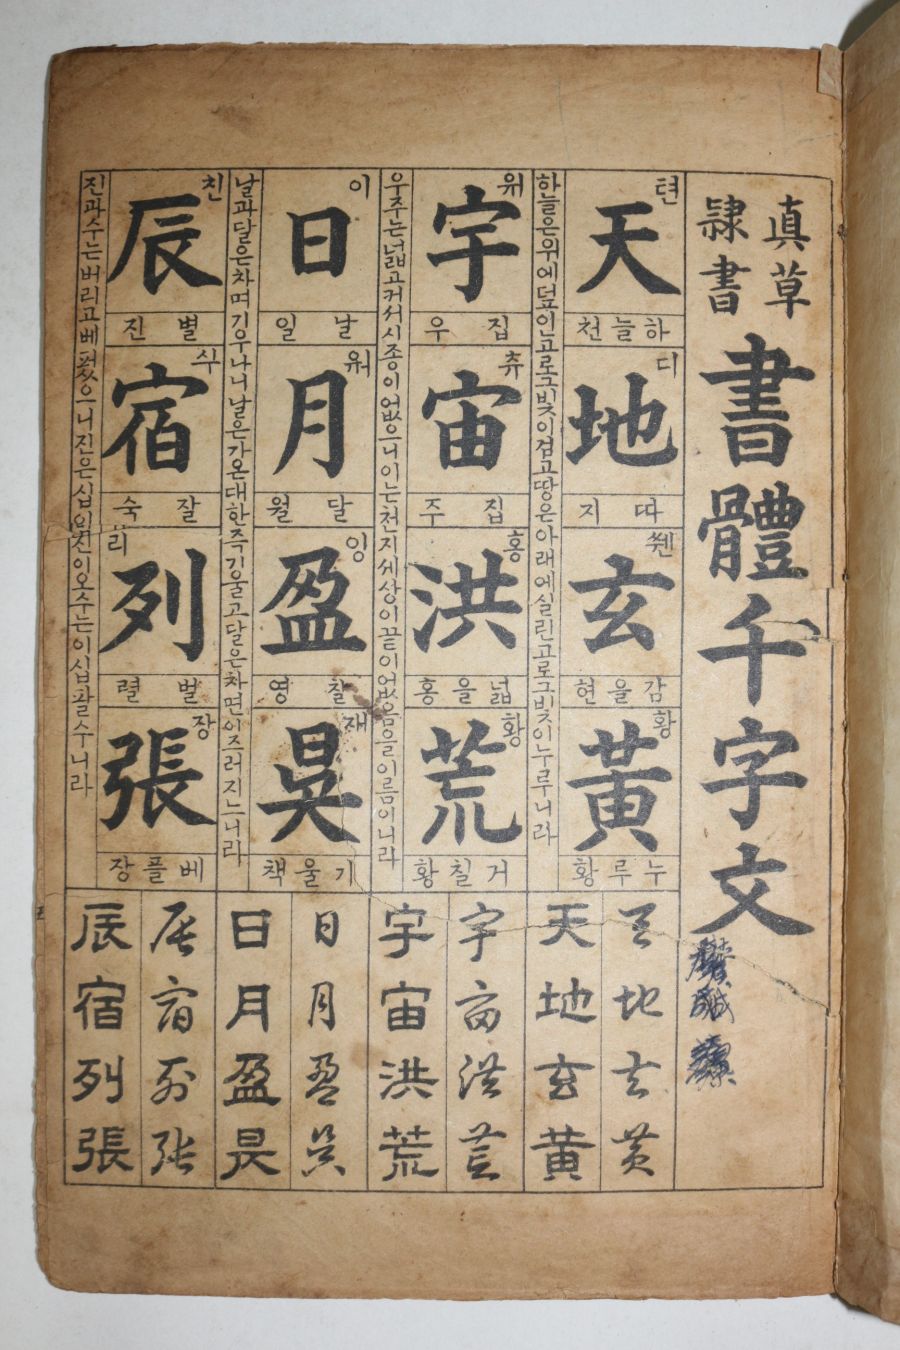 真草
隷書
書體千字文
天 텬
하늘 천
地 디
따 지
玄 쒠
감을 현
黃 황
누루 황
하늘은위에덮인고로그빛이검고땅은아래에실린고로그빛이누루니라
宇 위
집 우
宙 츄
집 주
洪 홍
넓을 홍
荒 황
거칠 황
우주는넓고커서시종이없으니이는천지세상이끝이없음을이름이니라
日 이
날 일
月 워
달 월
盈 잉
찰 영
昃 재
기울 책
날과달은차며기우나니날은가온대한즉기울고달은차면이즈러지느니라
辰 친
별 진
宿 쉬
잘 숙
列 리
벌 렬
張 장
베플 장
진과수는버리고베펐으니진은십이진이오수는이십팔수니라
天地玄黃
天地玄黃
宇宙洪荒
宇宙洪荒
日月盈昃
日月盈昃
辰宿列張
辰宿列張